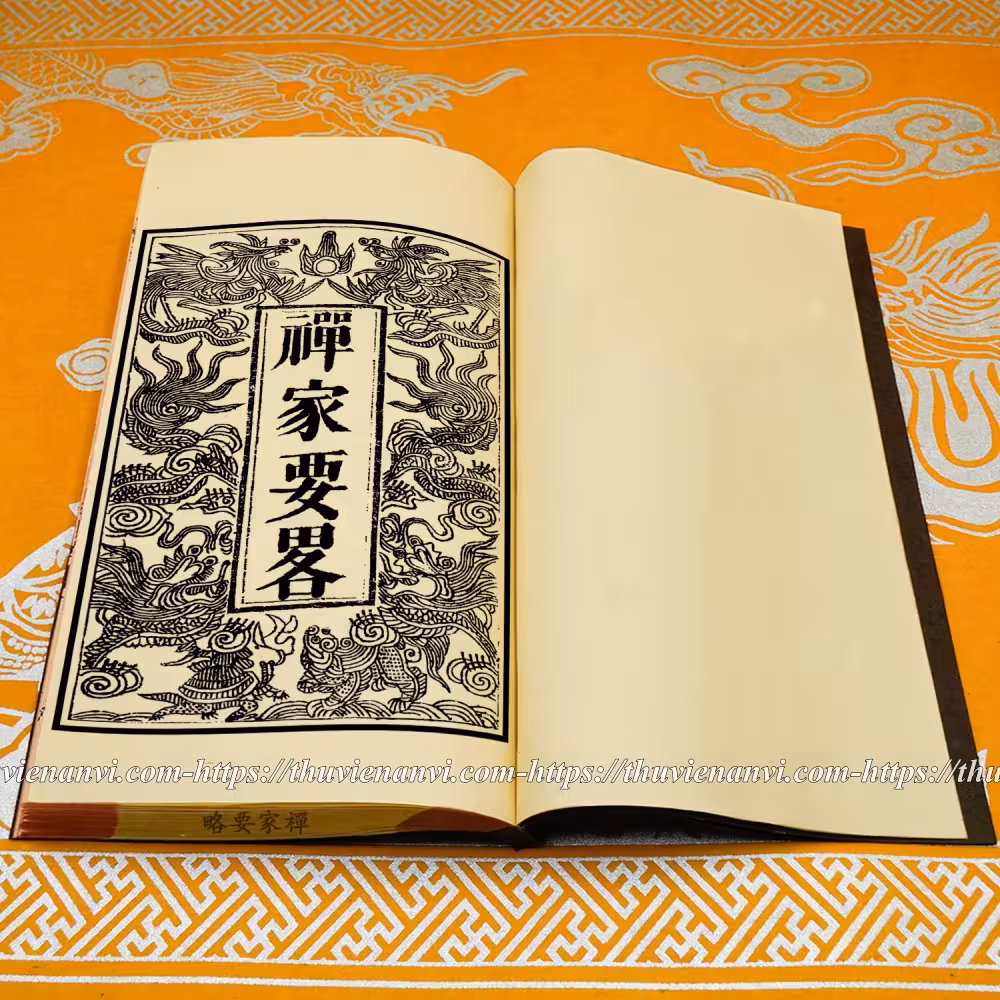 禪家要畧
vienanvi.com-https://thuvienanvi.com-https://thuvienanvi.com-https://thu
禪家要略